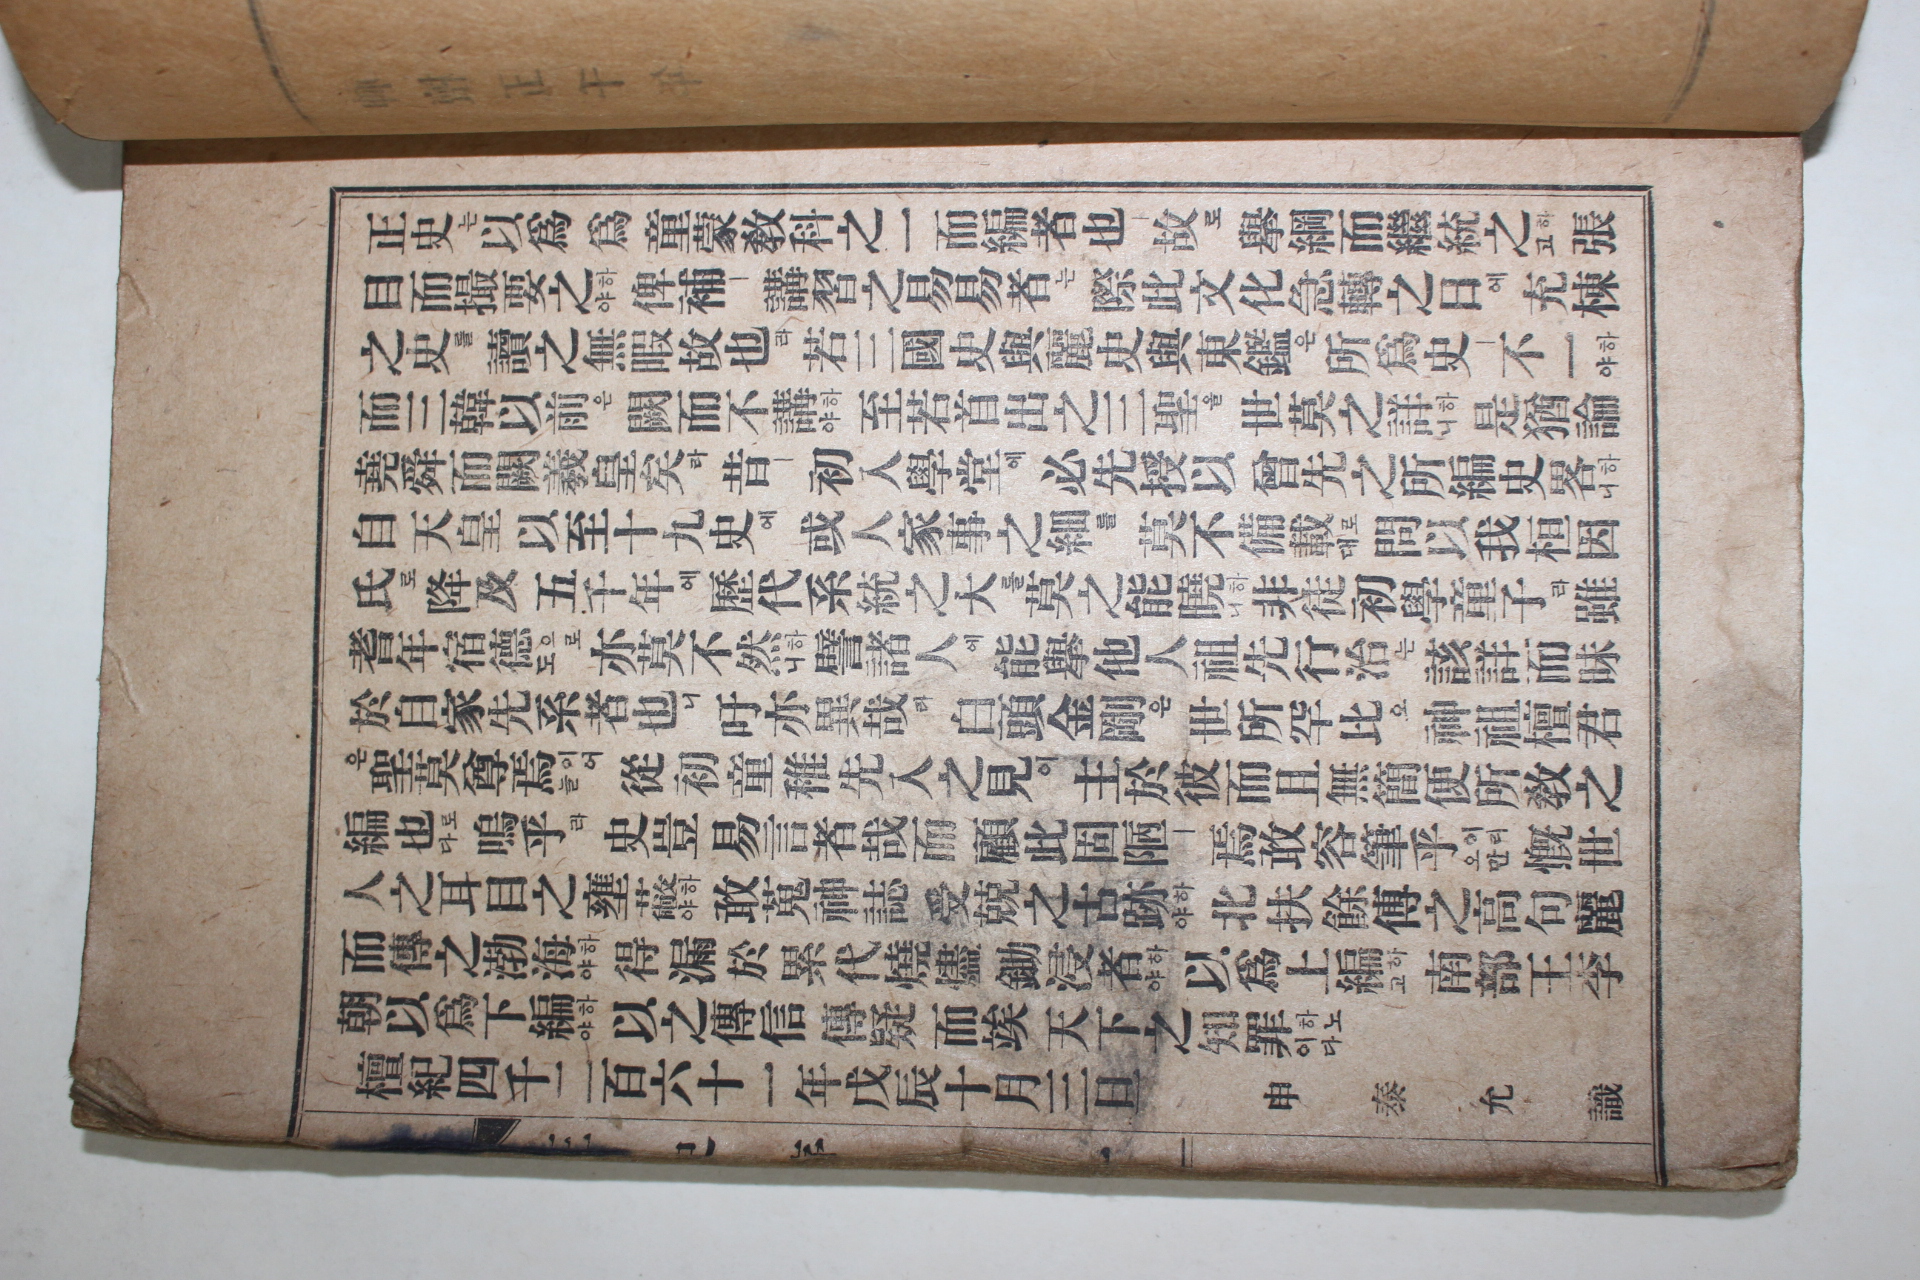 正史는以爲爲童蒙敎科之一而編者也ㅣ故로擧綱而繼統之하고張
目而撮要之하야俾補ㅣ講習之易易者는際此文化急轉之日에充棟
之史를讀之無暇故也라若三國史與麗史與東鑑은所爲史ㅣ不一하야
而三韓以前은闕而不講하야至若首出之三聖을世莫之詳하니是猶論
堯舜而闕羲皇矣라昔ㅣ初人學堂에必先授以曾先之所編史畧하니
自天皇以至十九史에或人家事之細를莫不備載대로問以我桓因
氏로降及五千年에歷代系統之大를莫之能曉하니非徒初學童子라雖
耆年宿德으로도亦莫不然하니譬諸人에能擧他人祖先行治는該詳而昧
於自家先系者也니吁亦異哉라白頭金剛은世所罕比오神祖檀君
은聖莫尊焉이어늘從初童稚先入之見이主於彼而且無簡便所敎之
編也다로嗚乎라史豈易言者哉而顧此固陋ㅣ焉敢容筆乎이리오만慨世
人之耳目之壅蔽하야敢蒐神誌受兢之古跡하야北扶餘傳之高句麗
而傳之渤海하야得漏於累代燒燼鋤浸者하야以爲上編하고南部王李
朝以爲下編하야以之傳信傳疑而竢天下之知罪하노이다
檀紀四千二百六十一年戊辰十月三日 申泰允識